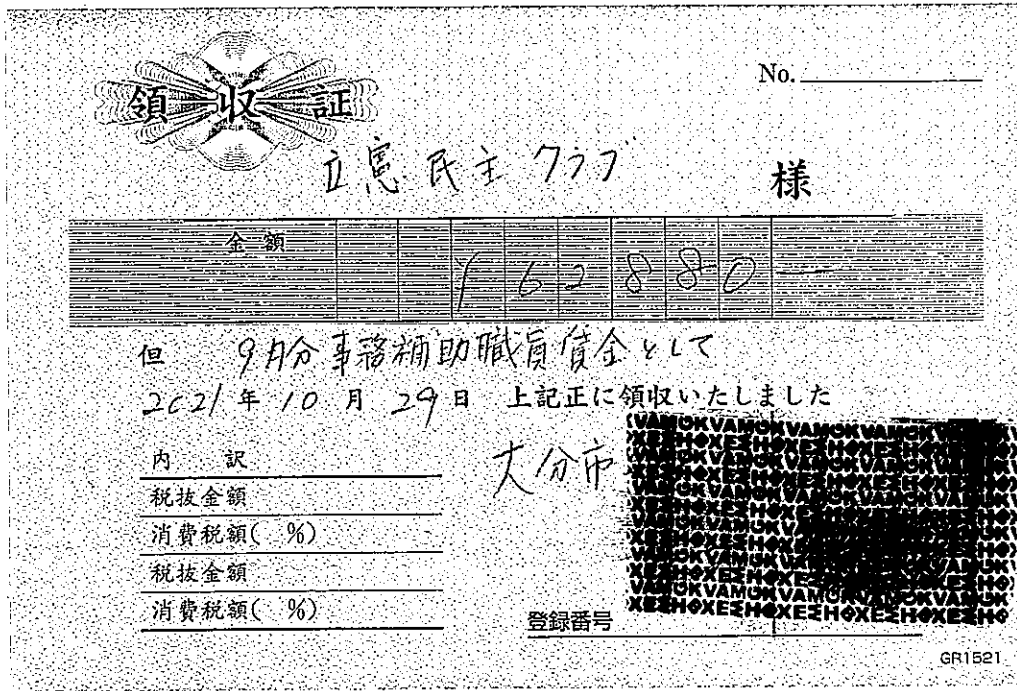 領収証
No.
立憲民主クラブ 様
金額 ¥62880
但 9月分事務補助職員賃金として
2021年10月29日 上記正に領収いたしました
大分市
内訳
税抜金額
消費税額( %)
税抜金額
消費税額( %)
登録番号
GR1521